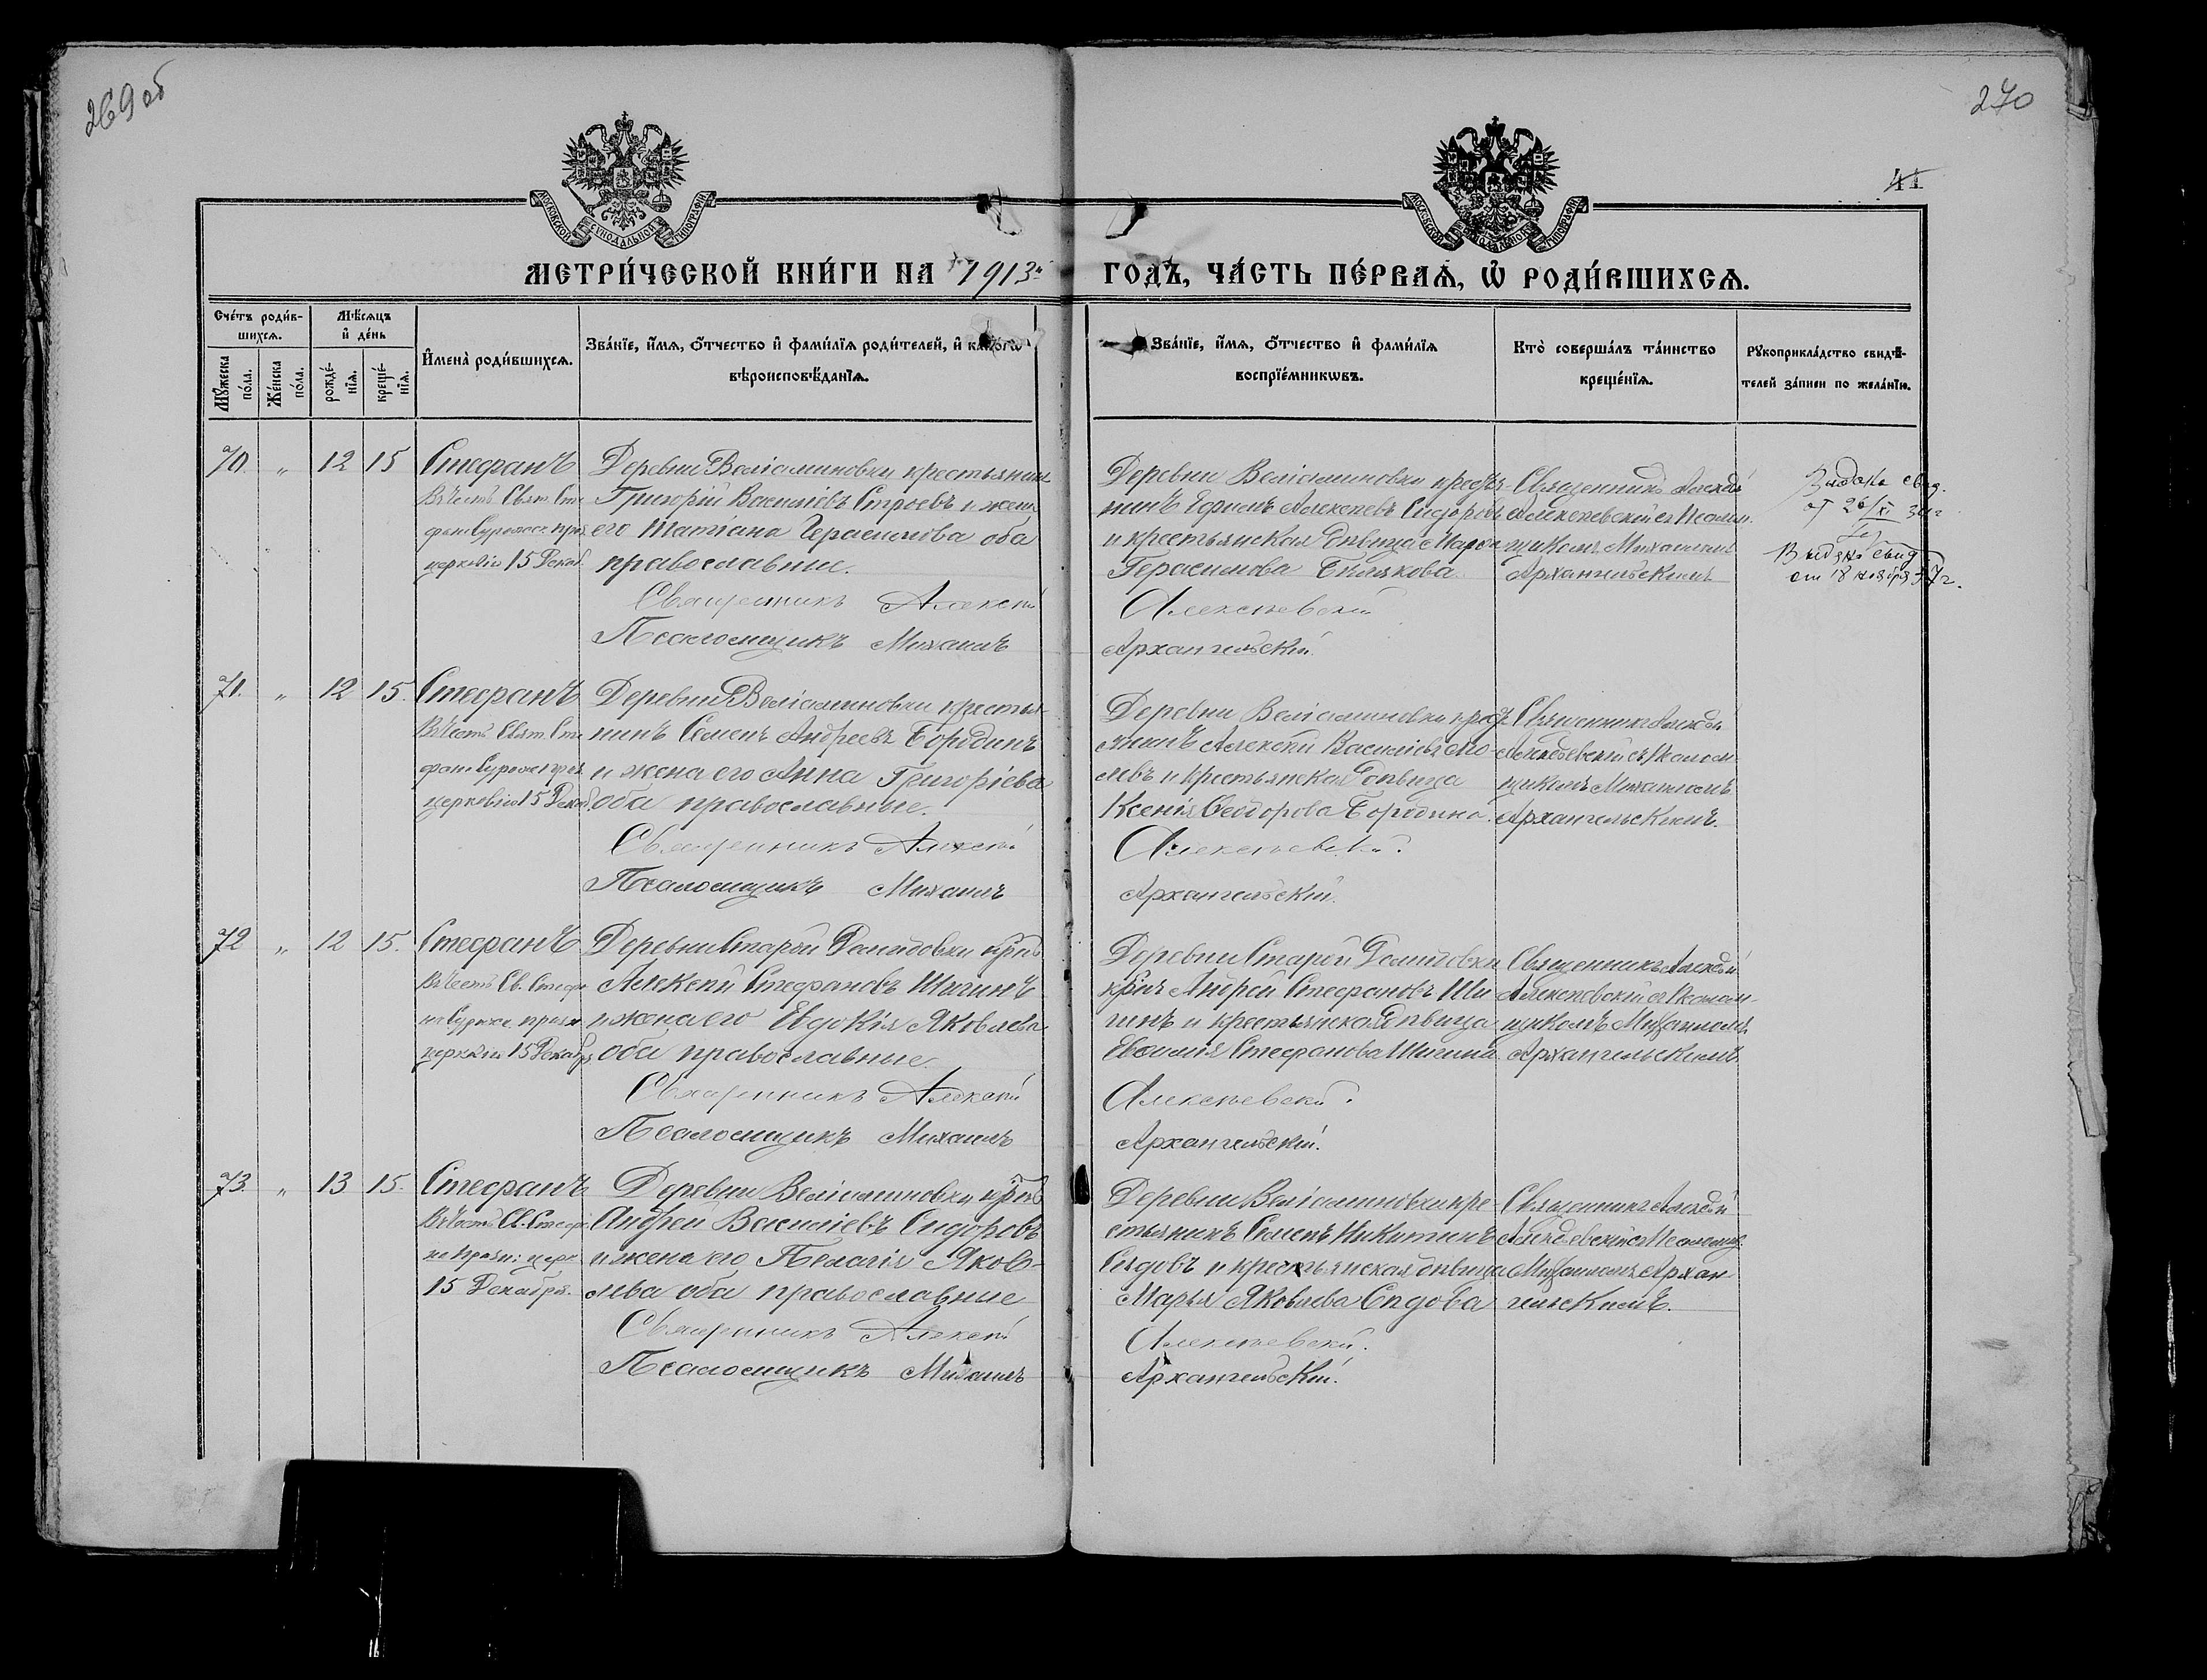 269 об
270
41
МОСКОВСКОЙ СѴНОДАЛЬНОЙ ТИПОГРАФІИ
МОСКОВСКОЙ СѴНОДАЛЬНОЙ ТИПОГРАФІИ
МЕТРИ́ЧЕСКОЙ КНИ́ГИ НА 1913й
ГОДЪ, ЧА́СТЬ ПЕ́РВАѦ, Ѽ РОДИ́ВШИХСѦ.
Сче́тъ роди́в-
шихсѧ.
Мꙋ́жеска
по́ла.
Же́нска
по́ла.
Мѣ́сѧцъ
и҆ де́нь
рожде́-
нїѧ.
креще́-
нїѧ.
И҆мена̀ роди́вшихсѧ.
Зва́нїе, и҆́мѧ, ѻ҆́тчество и҆ фами́лїѧ роди́телей, и҆ како́гѡ
вѣроисповѣ́данїѧ.
Зва́нїе, и҆́мѧ, ѻ҆́тчество и҆ фами́лїѧ
воспрїе́мникѡвъ.
Кто̀ соверша́лъ та́инство
креще́нїѧ.
Рꙋкоприкла́дство свидѣ́-
телей за́писи по жела́нїю.
70 " 12 15 Стефанъ
Въ честь Свят. Сте
фан Сурожс. праз
церковію 15 Декаб.
Деревни Веліаминовки крестьянинъ
Григорій Василіевъ Строевъ и жена
его Татіана Герасимова оба
православные.
Священникъ Алексѣй
Псаломщикъ Михаилъ
Деревни Веліаминовки кресть-
нинъ Ефимъ Алексѣевъ Сидоровъ
и крестьянская дѣвица Марѳа
Герасимова Бѣлякова.
Алексѣевскій
Архангельскій.
Священникъ Алексѣй
Алексѣевскій съ Псалом.
щикомъ Михаиломъ
Архангельскимъ
Выдано свид.
от 26/XI 34 г
Выдано свид
от 18 ноября 37 г.
71. " 12 15. Стефанъ
Въ честь Свят. Сте
фан Сурож праз
церковію 15 Декаб
Деревни Веліаминовки крестья-
нинъ Семенъ Андреевъ Бородинъ
и жена его Анна Григоріева
оба православные.
Священникъ Алексѣй
Псаломщикъ Михаилъ
Деревни Веліаминовки крест
янинъ Алексѣй Василіевъ
левъ и крестьянская дѣвица
Ксенія Ѳеодорова Бородина.
Алексѣевскій.
Архангельскій.
Священникъ Алексѣй
Алексѣевскій съ Псалом
щикомъ Михаиломъ
Архангельскимъ.
72 " 12 15. Стефанъ
Въ честь Св. Стефа
на Сурож. празн
церквію 15 Декабр.
Деревни Старой Демидовки крнъ
Алексѣй Стефановъ Шигинъ
и жена его Евдокія Яковлева
оба православные.
Священникъ Алексѣй
Псаломщикъ Михаилъ
Деревни Старой Демидовки
крнъ Андрей Стефановъ Ши
гинъ и крестьянская дѣвица
Евѳимія Стефанова Шигина.
Алексѣевскій.
Архангельскій.
Священникъ Алексѣй
Алексѣевскій съ Псалом-
щикомъ Михаиломъ
Архангельскимъ
73. " 13 15. Стефанъ
Въ честь Св. Стефа
на празн: церк
15 Декабря.
Деревни Веліаминовки крнъ
Андрей Василіевъ Сидоровъ
и жена его Пелагія Яков-
лева оба православные
Священникъ Алексѣй
Псаломщикъ Михаилъ
Деревни Веліаминовки кре-
стьянинъ Семенъ Никитинъ
Сѣдовъ и крестьянская дѣвица
Марья Яковлева Сѣдова
Алексѣевскій.
Архангельскій.
Священникъ Алексѣй
Алексѣевскій съ Псаломщ.
Михаиломъ Архан-
гельскимъ.